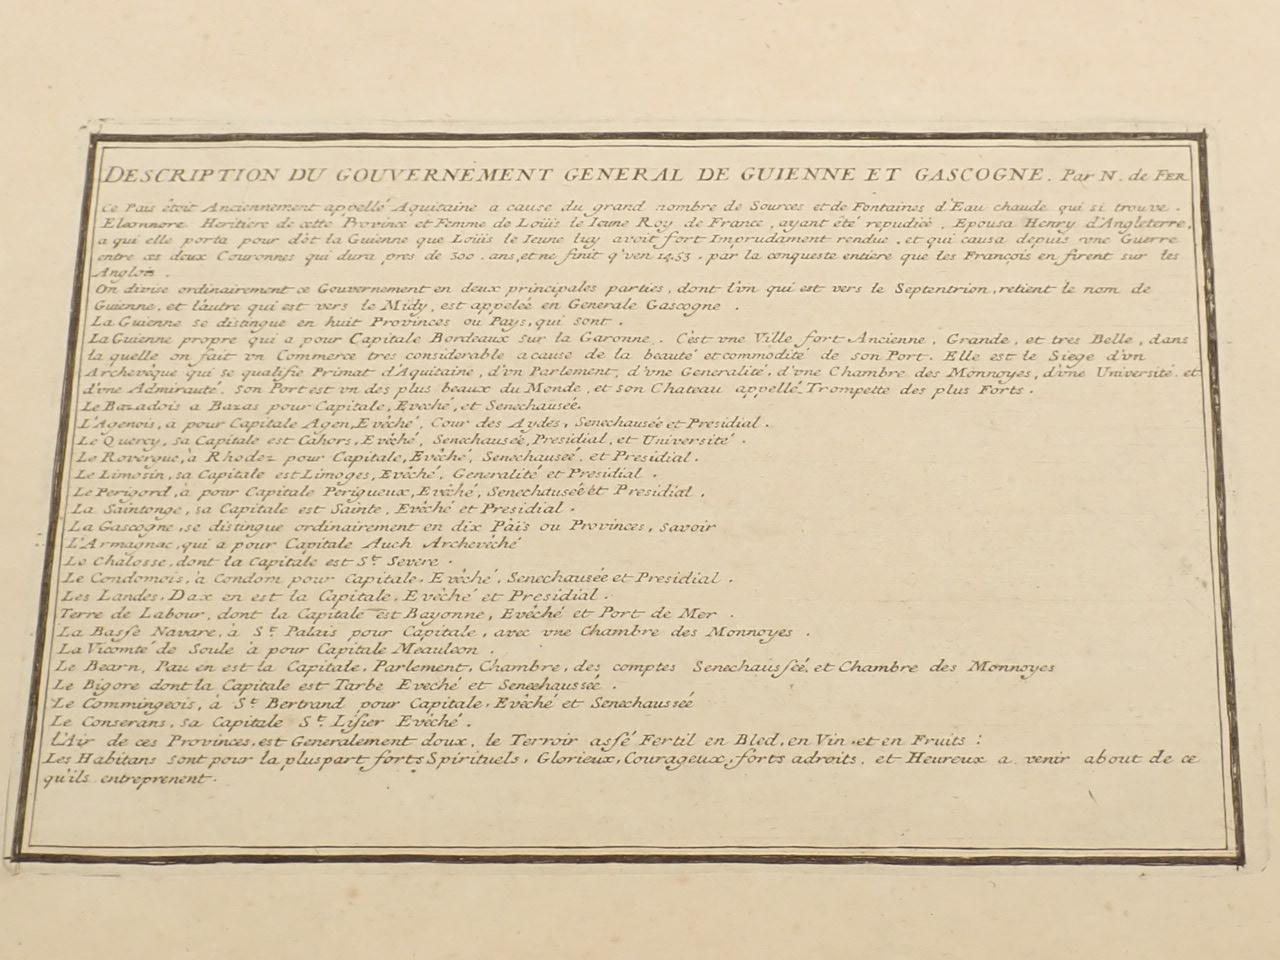 DESCRIPTION DU GOUVERNEMENT GENERAL DE GUIENNE ET GASCOGNE. Par N. de FER
Ce Païs étoit Anciennement appellé Aquitaine a cause du grand nombre de Sources et de Fontaines d'Eau chaude qui si trouve.
Eleonnore Heritiere de cette Province et Femme de Loüis le Ieune Roy de France, ayant été repudieé, Epousa Henry d'Angleterre,
a qui elle porta pour dôt la Guienne que Loüis le Ieune luy avoit fort Imprudament rendue, et qui causa depuis vne Guerre
entre ces deux Couronnes qui dura pres de 300. ans, et ne finit q'ven 1453. par la conqueste entiere que les François en firent sur les
Anglois.
On divise ordinairement ce Gouvernement en deux principales parties, dont l'vn qui est vers le Septentrion, retient le nom de
Guienne, et l'autre qui est vers le Midy, est appeleé en Generale Gascogne.
La Guienne se distingue en huit Provinces ou Pays, qui sont.
La Guienne propre qui a pour Capitale Bordeaux sur la Garonne. C'est vne Ville fort Ancienne, Grande, et tres Belle, dans
la quelle on fait vn Commerce tres considerable a cause de la beauté et commodité de son Port. Elle est le Siege d'vn
Archevêque qui se qualifie Primat d'Aquitaine, d'vn Parlement, d'vne Generalité, d'vne Chambre des Monnoyes, d'vne Université et
d'vne Admirauté. Son Port est vn des plus beaux du Monde, et son Chateau appellé Trompette des plus Forts.
Le Bazadois a Bazas pour Capitale, Eveché, et Senechauseé.
L'Agenois, a pour Capitale Agen, Evêché, Cour des Aydes, Senechauseé et Presidial.
Le Quercy, sa Capitale est Cahors, Evêché, Senechauseé, Presidial, et Université.
Le Rovergue, à Rhodez pour Capitale, Evêché, Senechauseé, et Presidial.
Le Limosin, sa Capitale est Limoges, Evêché, Generalité et Presidial.
Le Perigord, à pour Capitale Perigueux, Evêché, Senechauseé et Presidial.
La Saintonge, sa Capitale est Sainte, Evêché et Presidial.
La Gascogne, se distingue ordinairement en dix Païs ou Provinces, savoir
L'Armagnac, qui a pour Capitale Auch Archevêché
Le Chalosse, dont la Capitale est St. Severe.
Le Condomois, à Condom pour Capitale, Evêché, Senechausée et Presidial.
Les Landes, Dax en est la Capitale, Evêché et Presidial.
Terre de Labour, dont la Capitale est Bayonne, Evêché et Port de Mer.
La Basse Navare, à St. Palais pour Capitale, avec vne Chambre des Monnoyes.
La Vicomté de Soule à pour Capitale Meauleon.
Le Bearn, Pau en est la Capitale, Parlement, Chambre, des comptes Senechausseé, et Chambre des Monnoyes
Le Bigore dont la Capitale est Tarbe Eveché et Senechaussée.
Le Commingeois, à St. Bertrand pour Capitale, Evêché et Senechaussée
Le Conserans, sa Capitale St. Lisier Evêché.
L'Air de ces Provinces, est Generalement doux, le Terroir assé Fertil en Bled, en Vin, et en Fruits :
Les Habitans sont pour la pluspart forts Spirituels, Glorieux, Courageux, forts adroits, et Heureux a venir about de ce
qu'ils entreprenent.